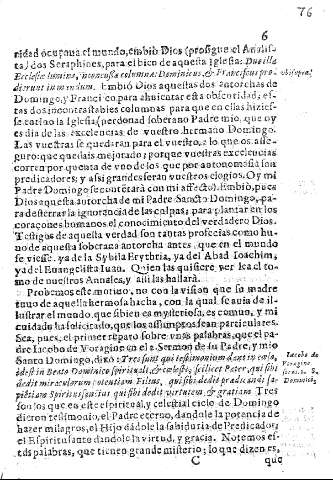 76
6
nidad ocupaua el mundo, embiò Dios (prosigue el Analis-
ta) dos Seraphines, para el bien de aquesta Iglesia: Duo illa
Ecclesiæ lumina, inconcussæ columnæ Dominicus, & Franciscus pro-
dierunt in mundum. Embiò Dios aquestas dos antorchas de
Domingo, y Francisco para ahuientar esta obscuridad; es-
tas dos incontrastables columnas para que en ellas hizies-
se estriuo la Iglesia; (perdonad soberano Padre mio, que oy
es dia de las excelencias de vuestro hermano Domingo.
Las vuestras se quedaràn para el vuestro, è lo que os asse-
guro: que quedais mejorado; porque vuestras excelencias
corren por quenta de vno de los que por autonomasia son
predicadores; y assi grandes seràn vuestros elogios. Oy mi
Padre Domingo se contentarà con mi afecto). Embiò, pues
Dios aquesta antorcha de mi Padre Sancto Domingo, pa-
ra desterrar la ignorancia de las culpas; para plantar en los
coraçones humanos el conocimiento del verdadero Dios.
Testigos de aquesta verdad son tantas profecias como hu-
uo de aquesta soberana antorcha antes, que en el mundo
se viesse, ya de la Sybila Erythria, ya del Abad Ioachim,
ya del Euangelista Iuan. Quien las quisiere ver lea el to-
mo de nuestros Annales, y alli las hallarà.
Probemos este motiuo, no con la vision que su madre
tuuo de aquella hermosa hacha, con la qual se auia de il-
lustrar el mundo, que si bien es mysteriosa, es comun, y mi
cuidado ha solicitado, que los assumptos sean particulares.
Sea, pues, el primer reparo sobre vnas palabras, que el pa-
dre Iacobo de Voragine en el 2. Sermon de su Padre, y mio
Santo Domingo, dixo: Tres sunt qui testimonium dant in cœlo,
idest in Beato Dominico spirituali, & cœlesti; scilicet Pater, qui sibi
dedit miraculorum potentiam Filius, qui sibi dedit prædicandi sa-
pientiam Spiritus sanctus qui sibi dedit virtutem, & gratiam Tres
son los que en este espiritual, y celestial cielo de Domingo
dieron testimonio, el Padre eterno, dandole la potencia de
hazer milagros, el Hijo dàdole la sabiduria de Predicador;
el Espiritu santo dandole la virtud, y gracia. Notemos es-
tas palabras, que tienen grande misterio; lo que dizen es,
C que
Iacobo de
Voragine
serm. 2. S.
Dominici,